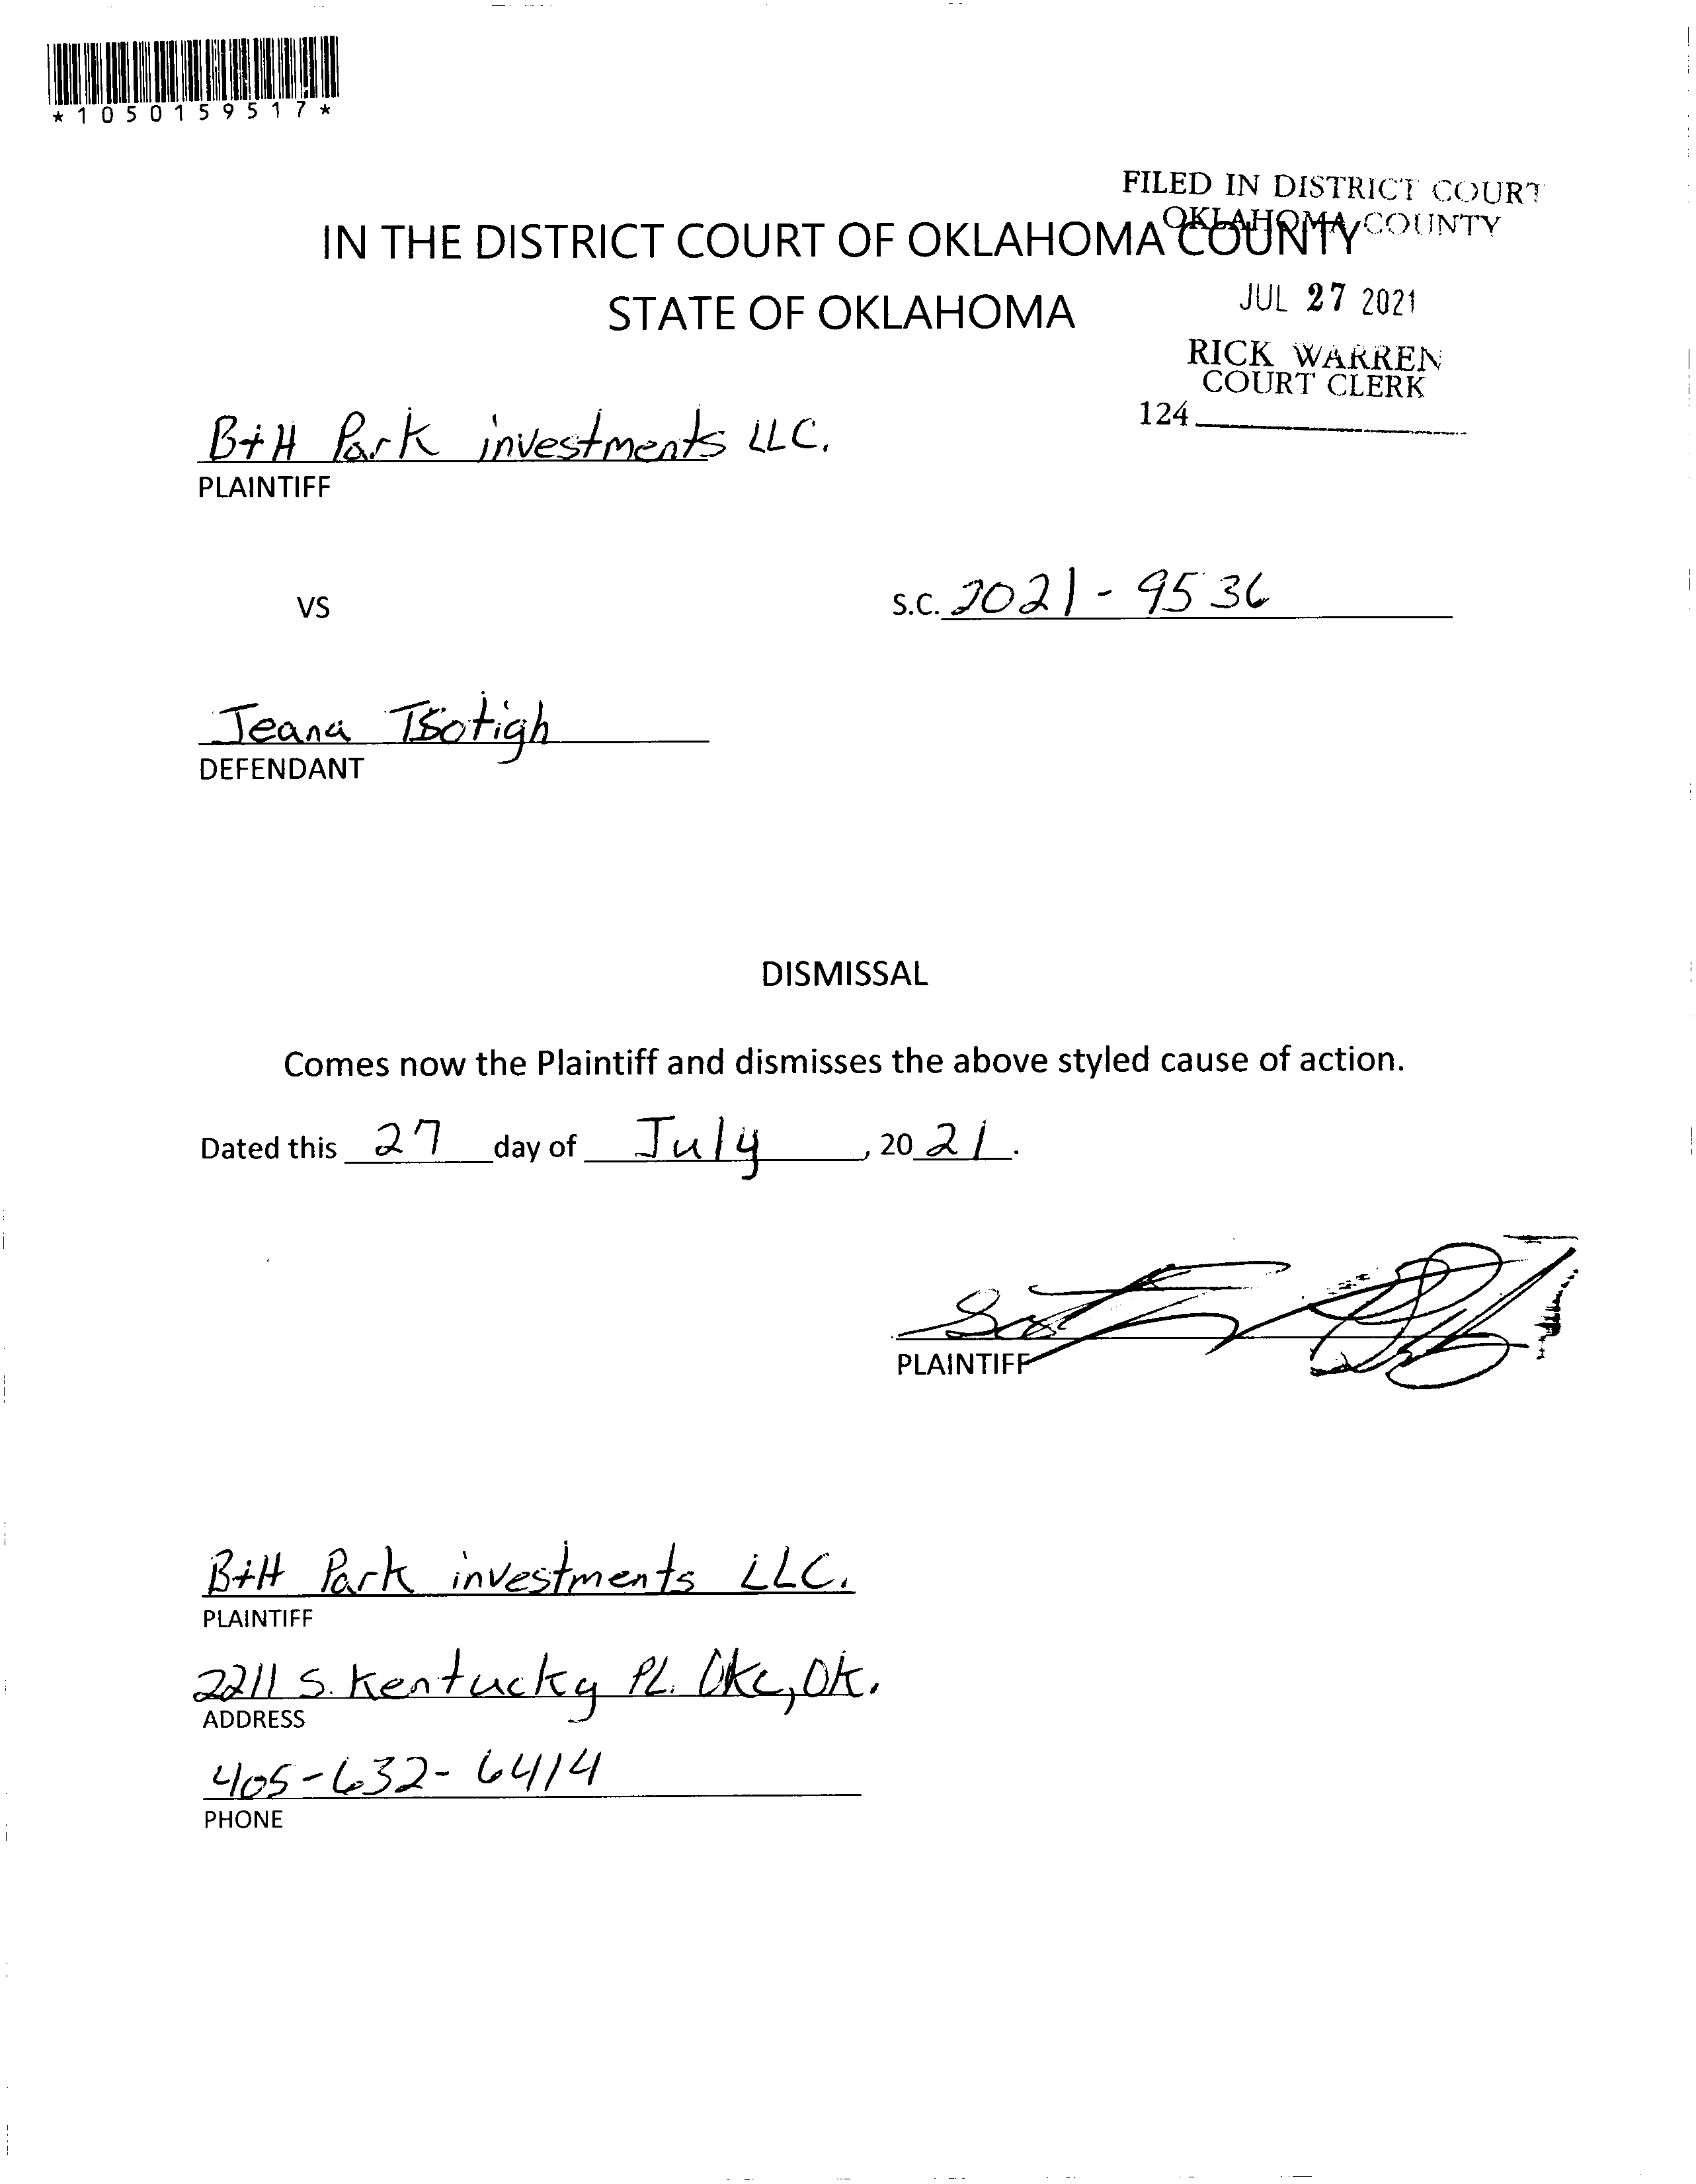 *1050159517*
FILED IN DISTRICT COURT
OKLAHOMA COUNTY
IN THE DISTRICT COURT OF OKLAHOMA COUNTY
STATE OF OKLAHOMA
JUL 27 2021
RICK WARREN
COURT CLERK
124
B+H Park investments LLC.
PLAINTIFF
VS
S.C. 2021-9536
Jeana Tsotigh
DEFENDANT
DISMISSAL
Comes now the Plaintiff and dismisses the above styled cause of action.
Dated this 27 day of July, 2021.
PLAINTIFF
B+H Park investments LLC.
PLAINTIFF
2211 S. Kentucky PL. Okc, Ok.
ADDRESS
405-632-6414
PHONE